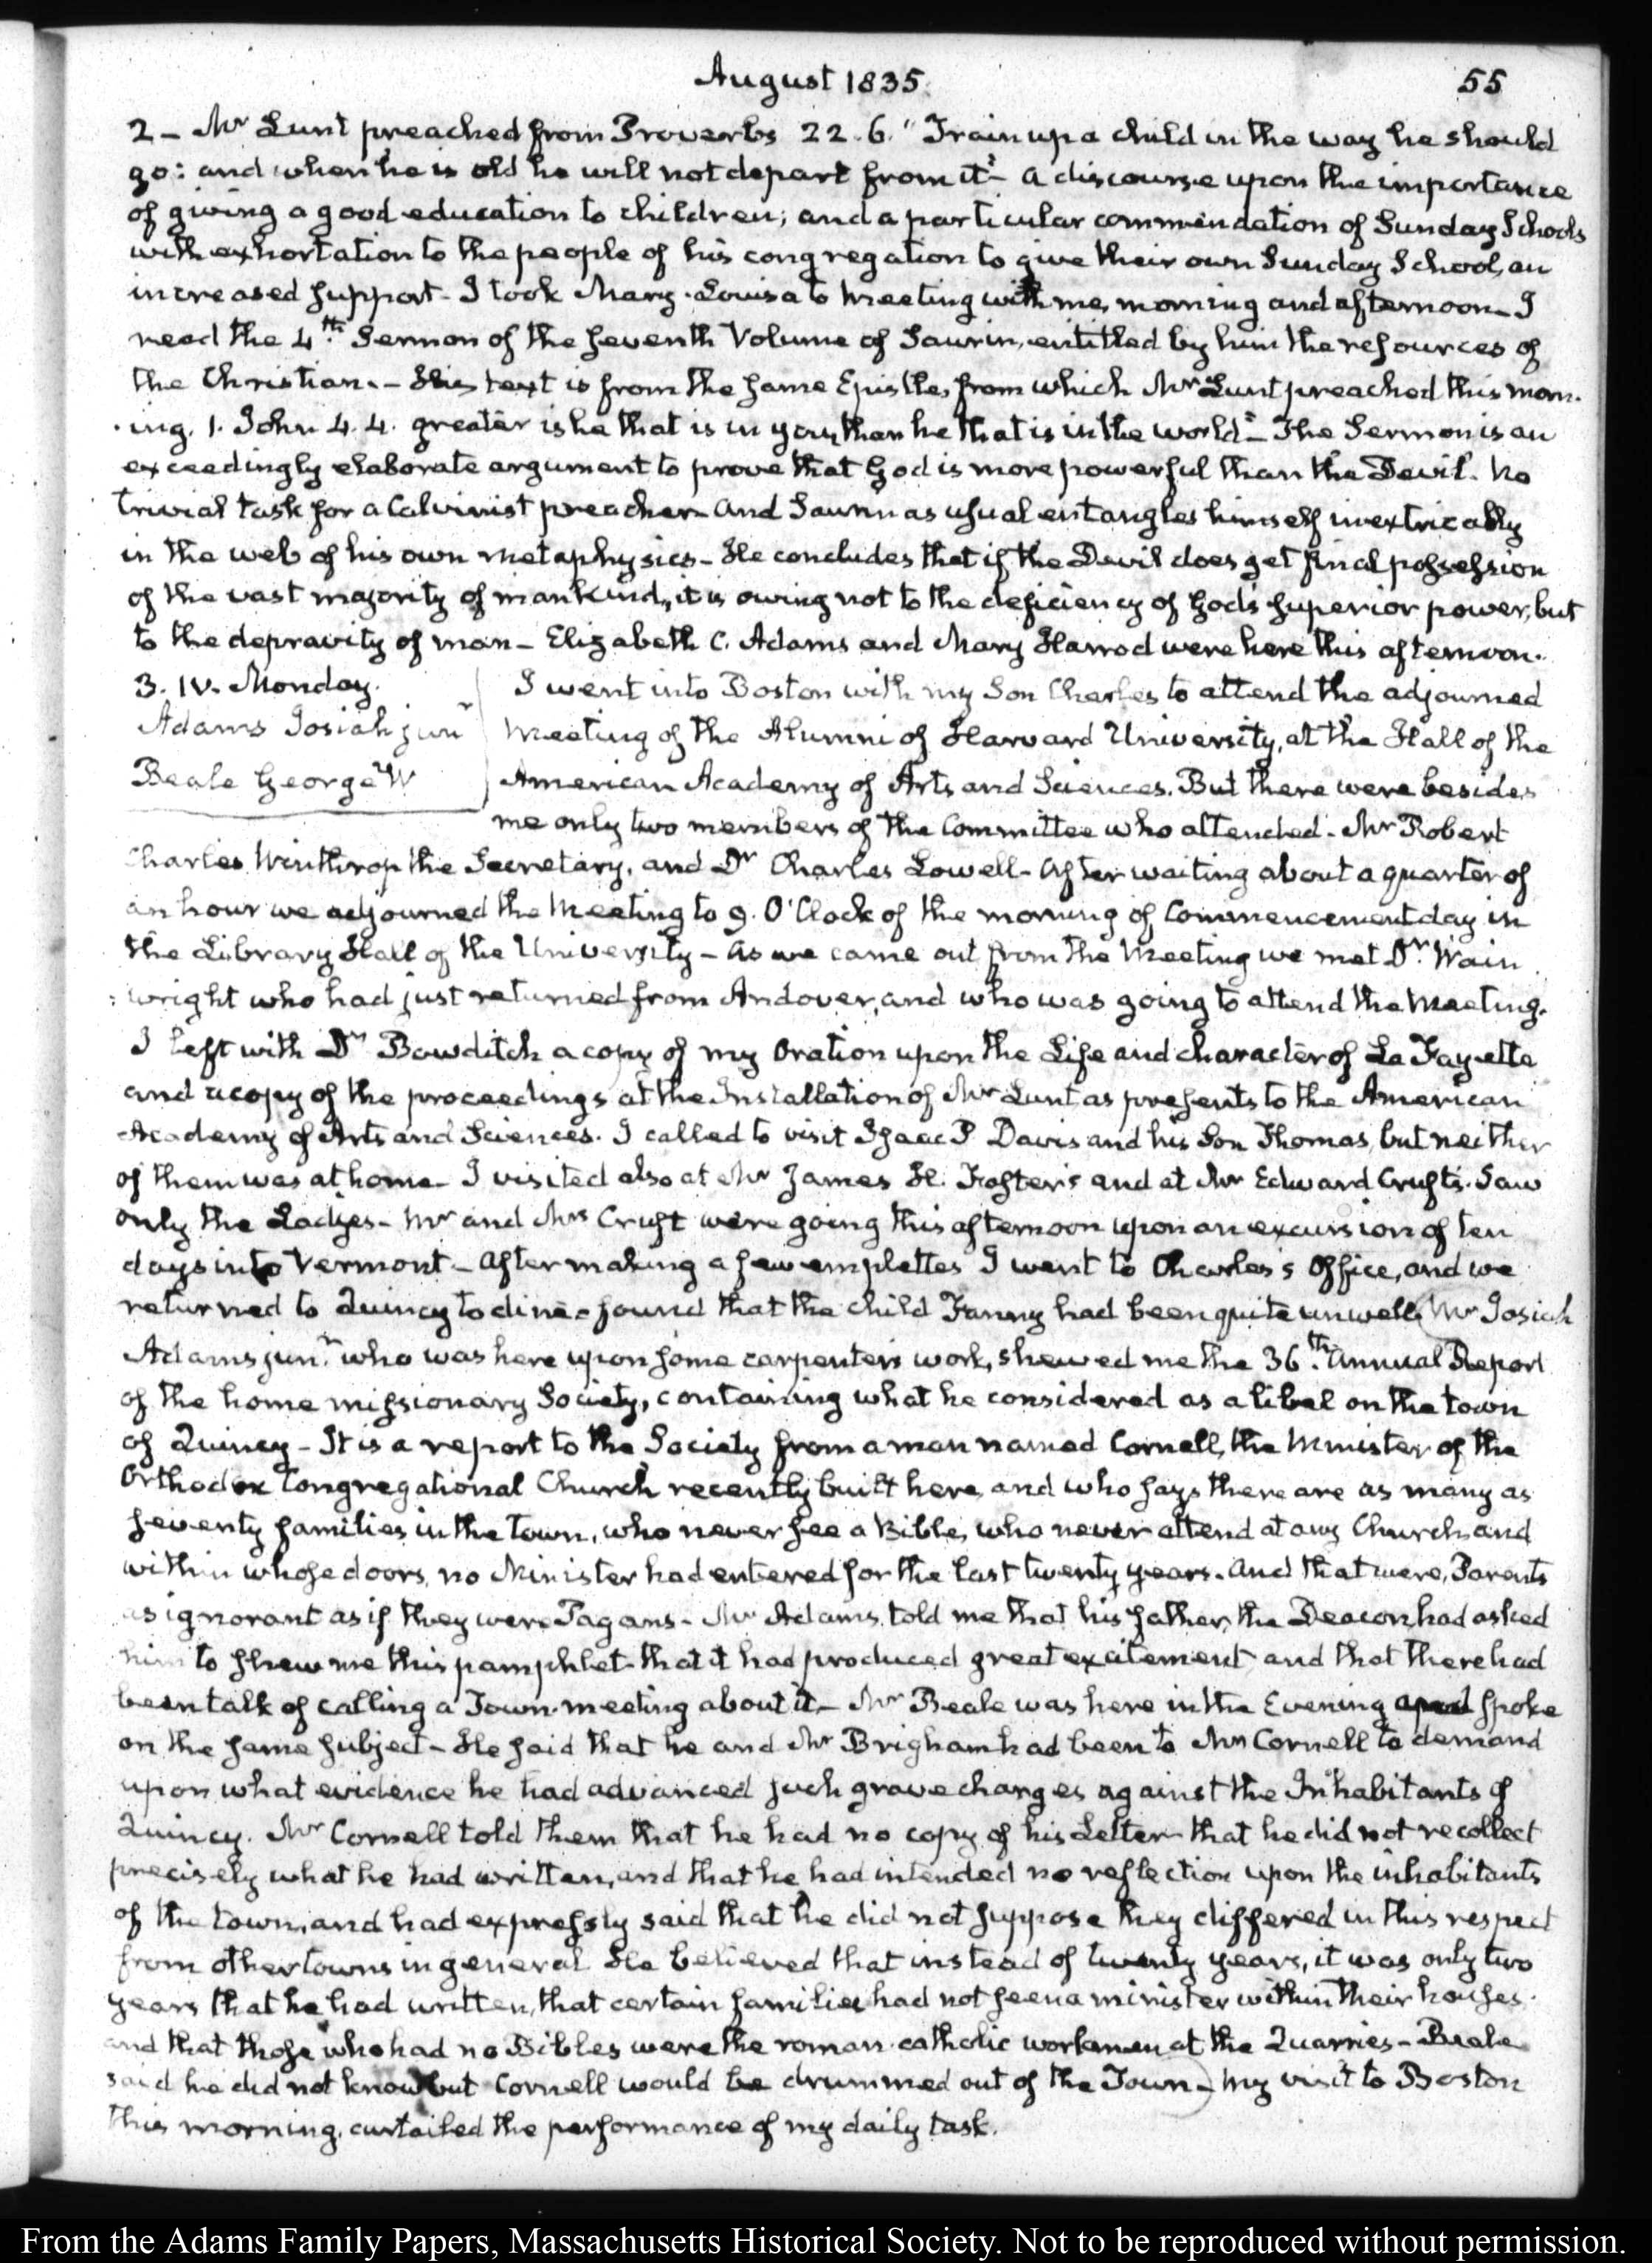 August 1835.
55
2 – Mr Lunt preached from Proverbs 22. 6. "Train up a child in the way he should
go: and when he is old he will not depart from it" – a discourse upon the importance
of giving a good education to children; and a particular commendation of Sunday Schools
with exhortation to the people of his congregation to give their own Sunday School, an
increased support – I took Mary-Louisa to Meeting with me, morning and afternoon – I
read the 4th Sermon of the seventh Volume of Saurin, entitled by him the resources of
the Christian. – His text is from the same Epistle, from which Mr Lunt preached this morn-
-ing. 1. John 4. 4. greater is he that is in you, than he that is in the world" – The Sermon is an
exceedingly elaborate argument to prove that God is more powerful than the Devil. No
trivial task for a Calvinist preacher – And Saurin as usual entangles himself inextricably
in the web of his own metaphysics – He concludes that if the Devil does get final possession
of the vast majority of mankind, it is owing not to the deficiency of God's superior power, but
to the depravity of man – Elizabeth C. Adams and Mary Harrod were here this afternoon.
3. IV. Monday.
Adams Josiah junr
Beale George W
I went into Boston with my Son Charles to attend the adjourned
Meeting of the Alumni of Harvard University, at the Hall of the
American Academy of Arts and Sciences. But there were besides
me only two members of the Committee who attended. Mr Robert
Charles Winthrop the Secretary, and Dr Charles Lowell – After waiting about a quarter of
an hour we adjourned the Meeting to 9. O'Clock of the morning of Commencement day in
the Library Hall of the University – As we came out from the Meeting we met Dr. Wain
:wright who had just returned from Andover, and who was going to attend the Meeting.
I left with Dr Bowditch a copy of my Oration upon the Life and character of La Fayette
and a copy of the proceedings at the Installation of Mr Lunt as presents to the American
Academy of Arts and Sciences. I called to visit Isaac P Davis and his Son Thomas, but neither
of them was at home – I visited also at Mr James H. Foster's and at Mr Edward Cruft's. Saw
only the Ladies – Mr and Mrs Cruft were going this afternoon upon an excursion of ten
days into Vermont – After making a few emplettes I went to Charles's Office, and we
returned to Quincy to dine – found that the child Fanny had been quite unwell. Mr Josiah
Adams junr. who was here upon some carpenters work, shewed me the 36th. Annual Report
of the home missionary Society, containing what he considered as a libel on the town
of Quincy – It is a report to the Society from a man named Cornell, the Minister of the
Orthodox Congregational Church recently built here, and who says there are as many as
seventy families in the town, who never see a Bible, who never attend at any Church, and
within whose doors, no Minister had entered for the last twenty years. And that were, Parents
as ignorant as if they were Pagans – Mr Adams told me that his father, the Deacon had asked
him to shew me this pamphlet – that it had produced great excitement and that there had
been talk of calling a Town-meeting about it – Mr Beale was here in the Evening and spoke
on the same subject – He said that he and Mr Brigham had been to Mr Cornell to demand
upon what evidence he had advanced such grave charges against the Inhabitants of
Quincy. Mr Cornell told them that he had no copy of his Letter – that he did not recollect
precisely what he had written, and that he had intended no reflection upon the inhabitants
of the town, and had expressly said that he did not suppose they differed in this respect
from other towns in general. He believed that instead of twenty years, it was only two
years that he had written, that certain families had not seen a minister within their houses.
and that those who had no Bibles were the roman-catholic workmen at the Quarries – Beale
said he did not know but Cornell would be drummed out of the Town – My visit to Boston
this morning, curtailed the performance of my daily task.
From the Adams Family Papers, Massachusetts Historical Society. Not to be reproduced without permission.